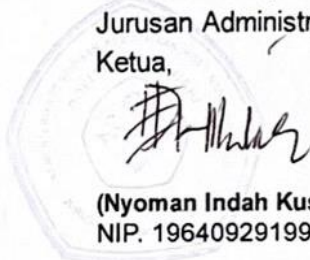 Jurusan Administr
Ketua,
(Nyoman Indah Kus
NIP. 19640929199